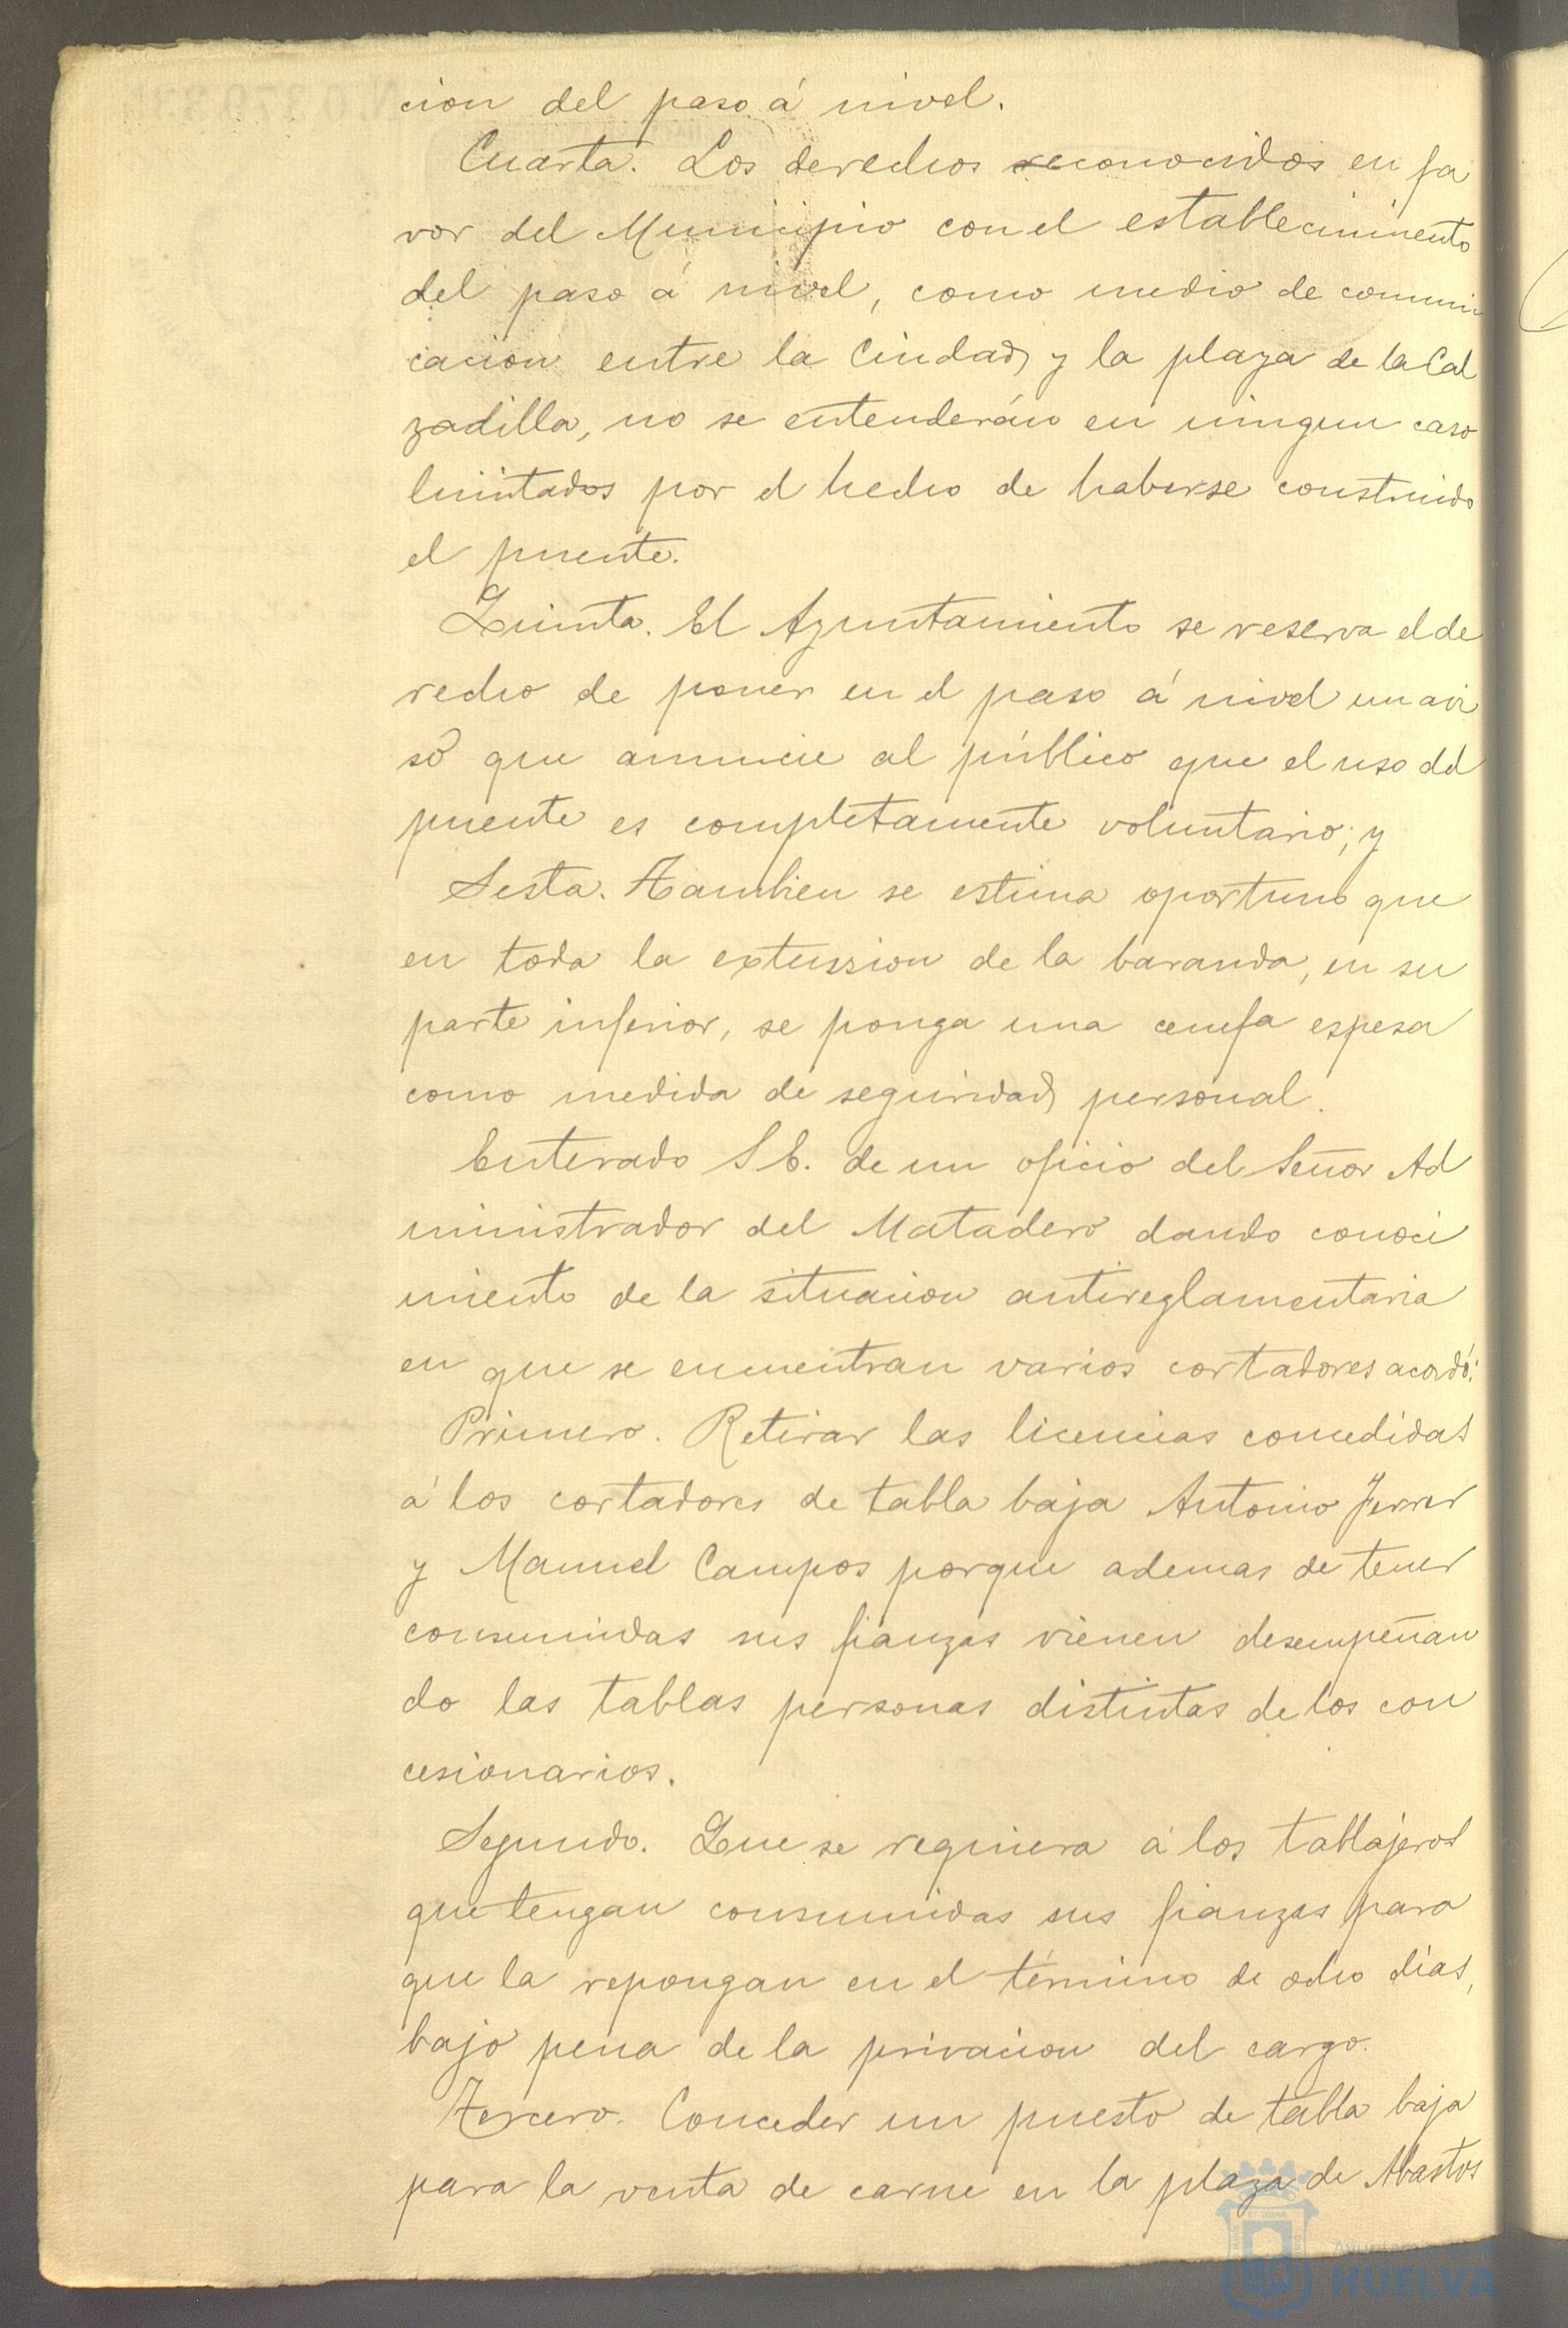 cion del paso á nivel.
Cuarta. Los derechos reconocidos en fa
vor del Municipio con el establecimiento
del paso á nivel, como medio de comuni
cacion entre la Ciudad y la plaza de la Cal
zadilla, no se entenderán en ningun caso
limitados por el hecho de haberse construido
el puente.
Quinta. El Ayuntamiento se reserva el de
recho de poner en el paso á nivel un avi
so que anuncie al público que el uso del
puente es completamente voluntario; y
Sesta. Tambien se estima oportuno que
en toda la extension de la baranda, en su
parte inferior, se ponga una cenefa espesa
como medida de seguridad personal.
Enterado S E. de un oficio del Señor Ad
ministrador del Matadero dando conoci
miento de la situacion antireglamentaria
en que se encuentran varios cortadores acordó:
Primero. Retirar las licencias concedidas
á los cortadores de tabla baja Antonio Ferrer
y Manuel Campos porque ademas de tener
consumidas sus fianzas vienen desempeñan
do las tablas personas distintas de los con
cesionarios.
Segundo. Que se requiera á los tablajeros
que tengan consumidas sus fianzas para
que la repongan en el término de ocho dias,
bajo pena de la privacion del cargo.
Tercero. Conceder un puesto de tabla baja
para la venta de carne en la plaza de Abastos
HUELVA